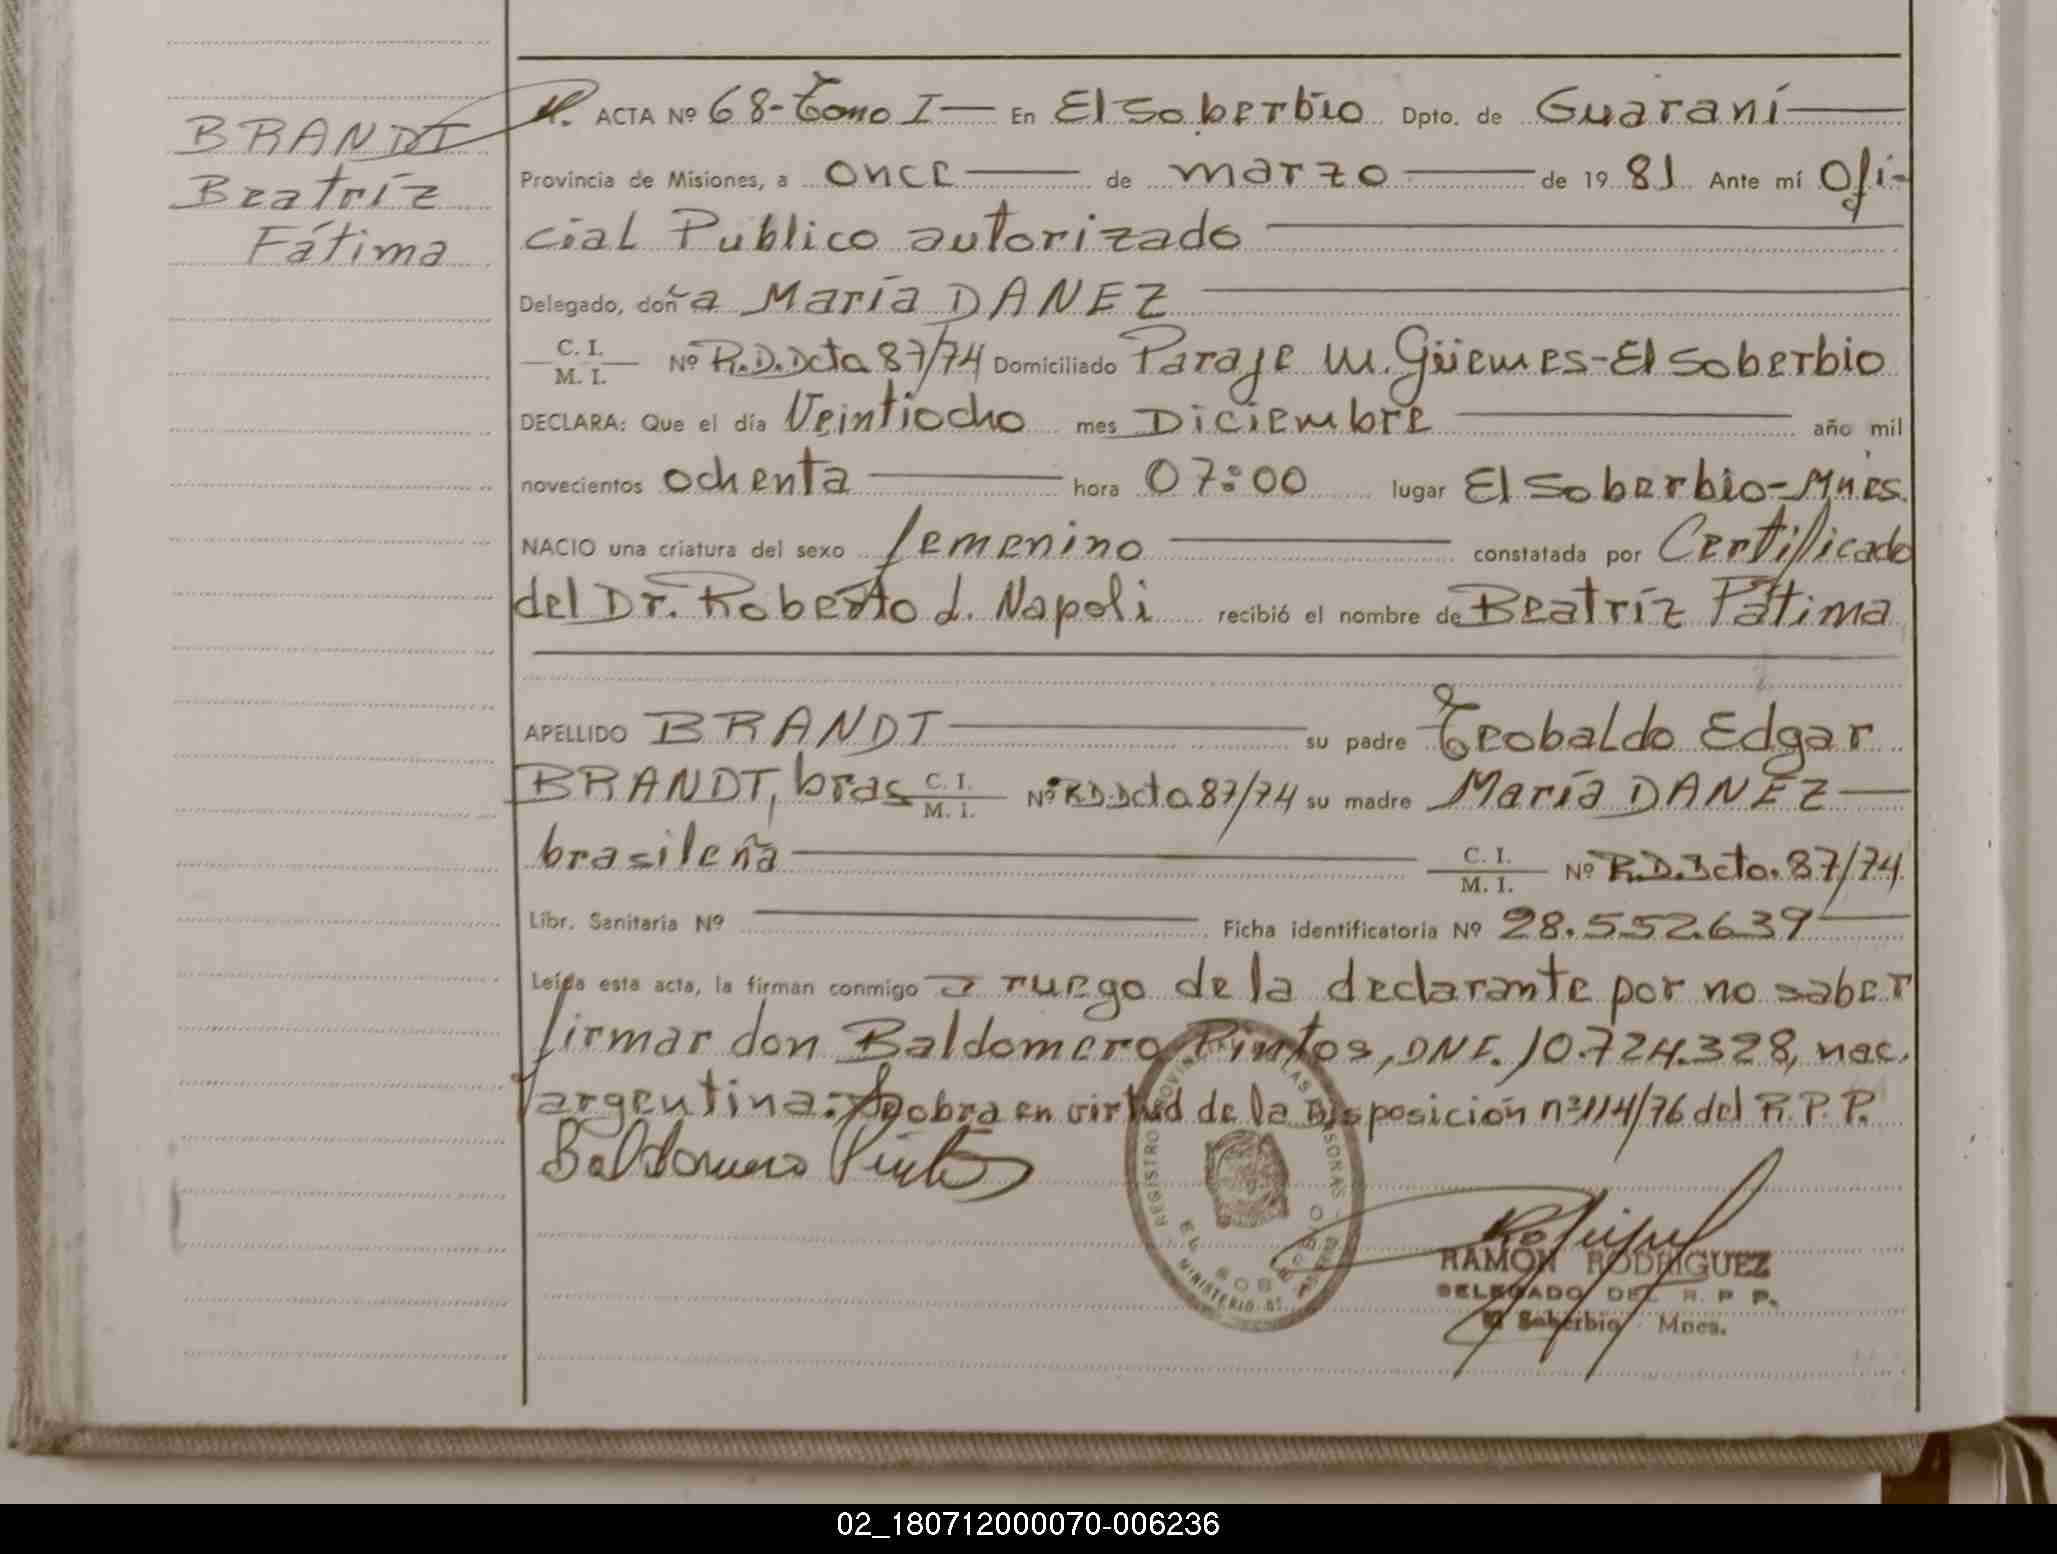 BRANDT
Beatríz
Fátima
ACTA Nº 68-Tomo I — En El Soberbio Dpto. de Guaraní
Provincia de Misiones, a once de marzo de 19 81 Ante mí Ofi-
cial Publico autorizado
Delegado, doña María DANEZ
C. I. / M. I. Nº R.D.Dcto 87/74 Domiciliado Paraje M. Güemes-El Soberbio
DECLARA: Que el día Veintiocho mes Diciembre año mil
novecientos ochenta hora 07:00 lugar El Soberbio-Mnes.
NACIO una criatura del sexo femenino constatada por Certificado
del Dr. Roberto L. Napoli recibió el nombre de Beatríz Fátima
APELLIDO BRANDT su padre Teobaldo Edgar
BRANDT, bras C. I. / M. I. Nº R.D.Dcto 87/74 su madre María DANEZ
brasileña C. I. / M. I. Nº R.D.Dcto. 87/74
Libr. Sanitaria Nº Ficha identificatoria Nº 28.552.639
Leída esta acta, la firman conmigo a ruego de la declarante por no saber
firmar don Baldomero Pintos, DNI. 10.724.328, nac.
argentina: Se obra en virtud de la Disposición nº 114/76 del R.P.P.
Baldomero Pintos
REGISTRO PROVINCIAL DE LAS PERSONAS
EL SOBERBIO
MINISTERIO DE
RAMÓN RODRIGUEZ
DELEGADO DEL R. P. P.
El Soberbio - Mnes.
02_180712000070-006236